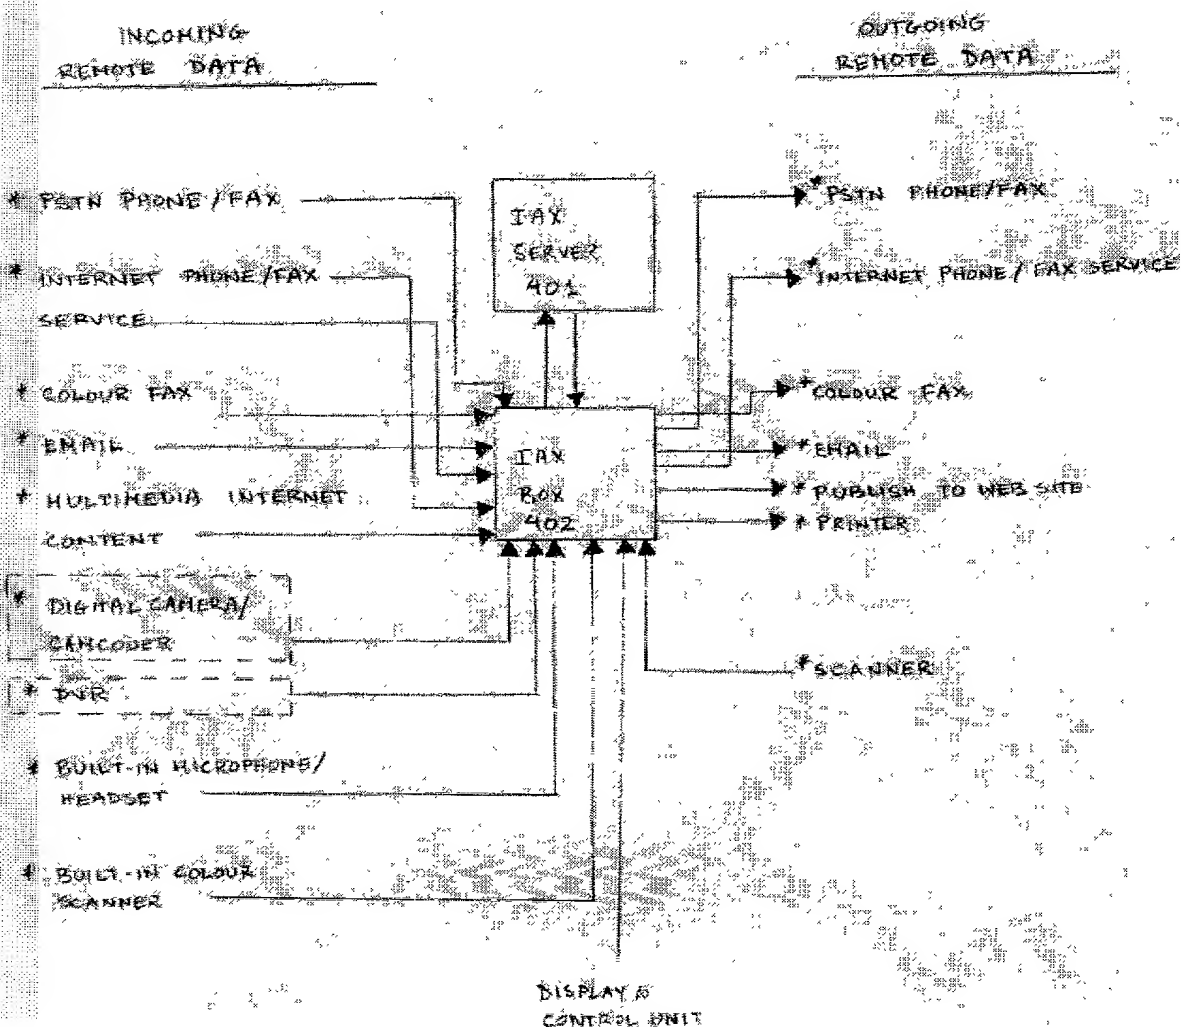 INCOMING
REMOTE DATA
OUTGOING
REMOTE DATA
* PSTN PHONE / FAX
* INTERNET PHONE / FAX
SERVICE
* COLOUR FAX
* EMAIL
* MULTIMEDIA INTERNET
CONTENT
* DIGITAL CAMERA/
CAMCODER
* DVR
* BUILT-IN MICROPHONE/
HEADSET
* BUILT-IN COLOUR
SCANNER
IAX
SERVER
401
IAX
BOX
402
* PSTN PHONE/FAX
* INTERNET PHONE / FAX SERVICE
* COLOUR FAX
* EMAIL
* PUBLISH TO WEB SITE
* PRINTER
* SCANNER
DISPLAY &
CONTROL UNIT